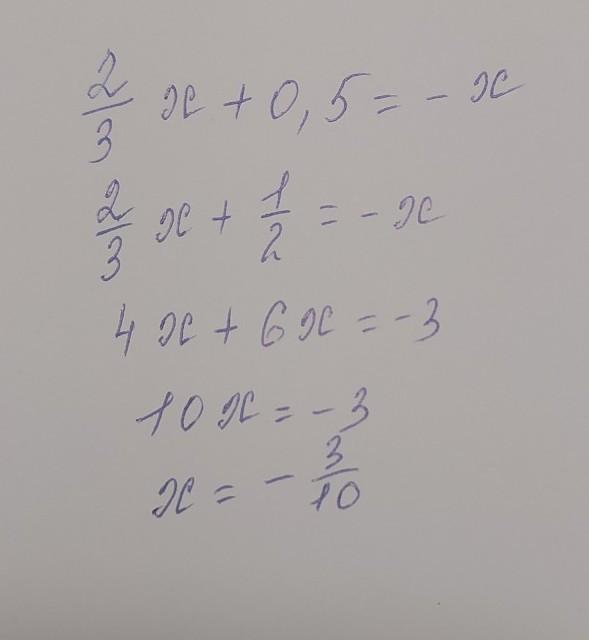 2/3 x + 0,5 = - x
2/3 x + 1/2 = - x
4x + 6x = -3
10x = -3
x = - 3/10